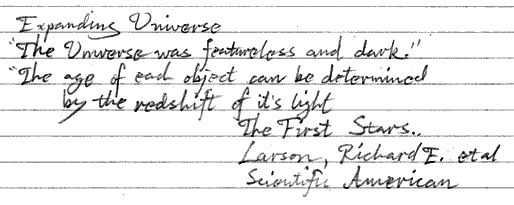 Expanding Universe
"The Universe was featureless and dark."
"The age of each object can be determined
by the redshift of it's light
The First Stars..
Larson, Richard E. et al
Scientific American